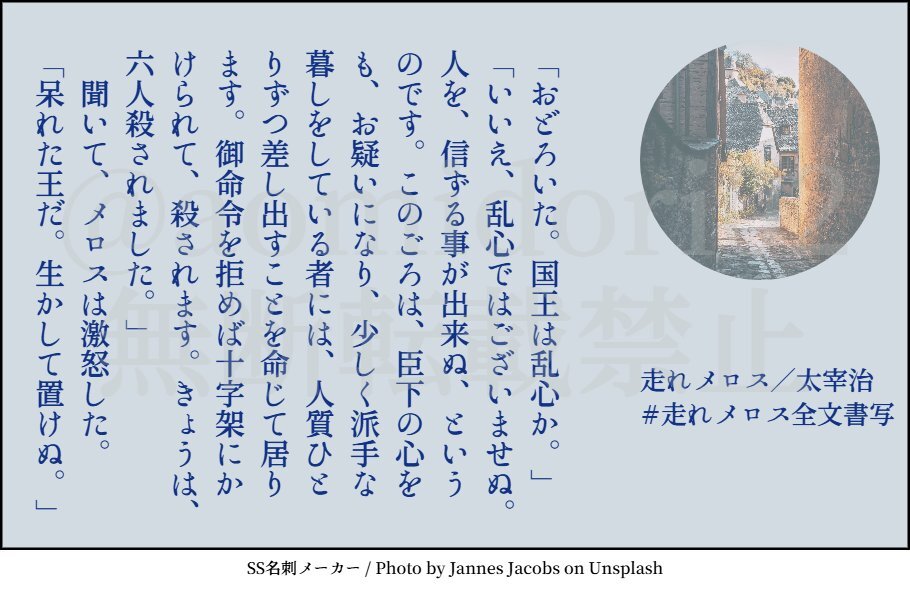 「おどろいた。国王は乱心か。」
「いいえ、乱心ではございませぬ。
人を、信ずる事が出来ぬ、という
のです。このごろは、臣下の心を
も、お疑いになり、少しく派手な
暮しをしている者には、人質ひと
りずつ差し出すことを命じて居り
ます。御命令を拒めば十字架にか
けられて、殺されます。きょうは、
六人殺されました。」
聞いて、メロスは激怒した。
「呆れた王だ。生かして置けぬ。」
走れメロス／太宰治
#走れメロス全文書写
@aomidori_2
無断転載禁止
SS名刺メーカー / Photo by Jannes Jacobs on Unsplash